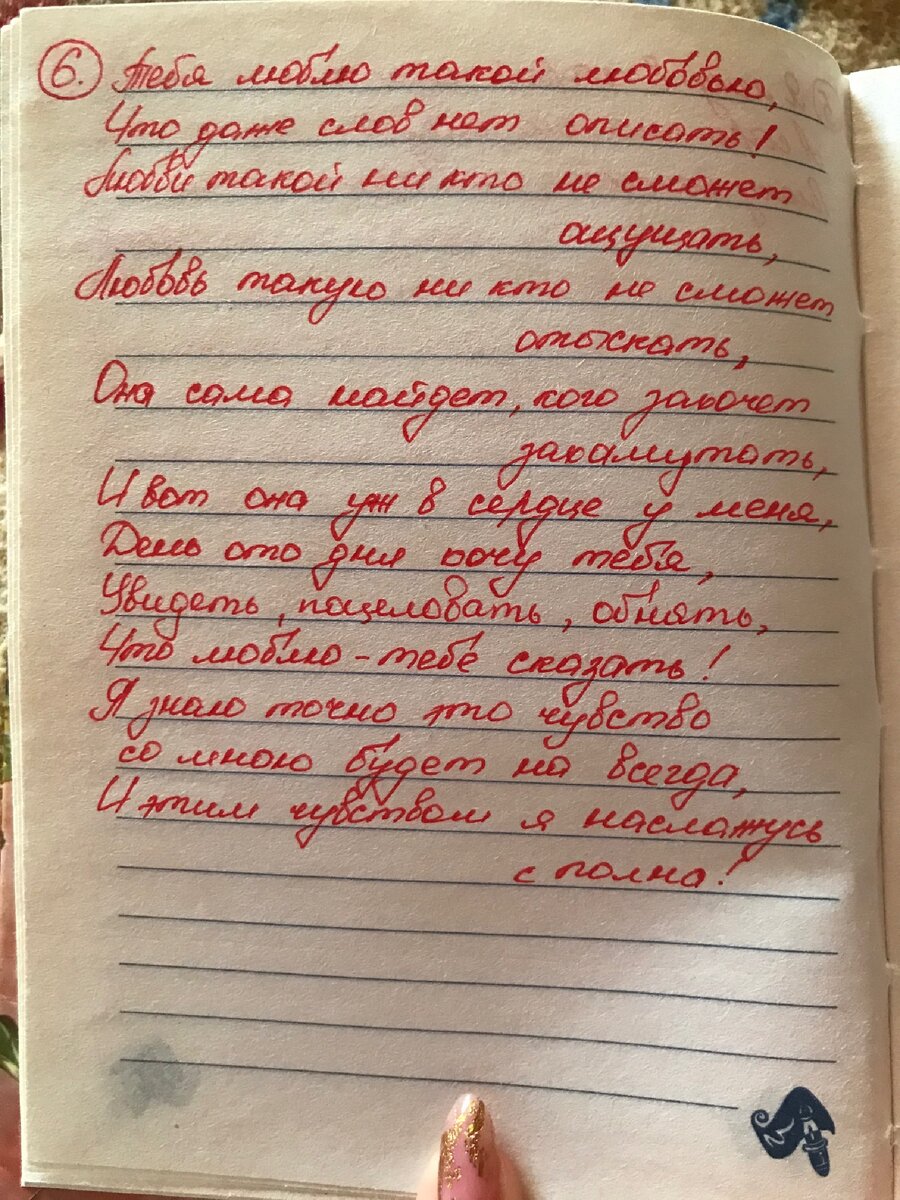 6. Тебя люблю такой любовью,
Что даже слов нет описать!
Любви такой ни кто не сможет
ощущать,
Любовь такую ни кто не сможет
отыскать,
Она сама найдет, кого захочет
захамутать,
И вот она уж в сердце у меня,
День ото дня хочу тебя,
Увидеть, поцеловать, обнять,
Что люблю - тебе сказать!
Я знаю точно это чувство
со мною будет на всегда,
И этим чувством я наслажусь
с полна!